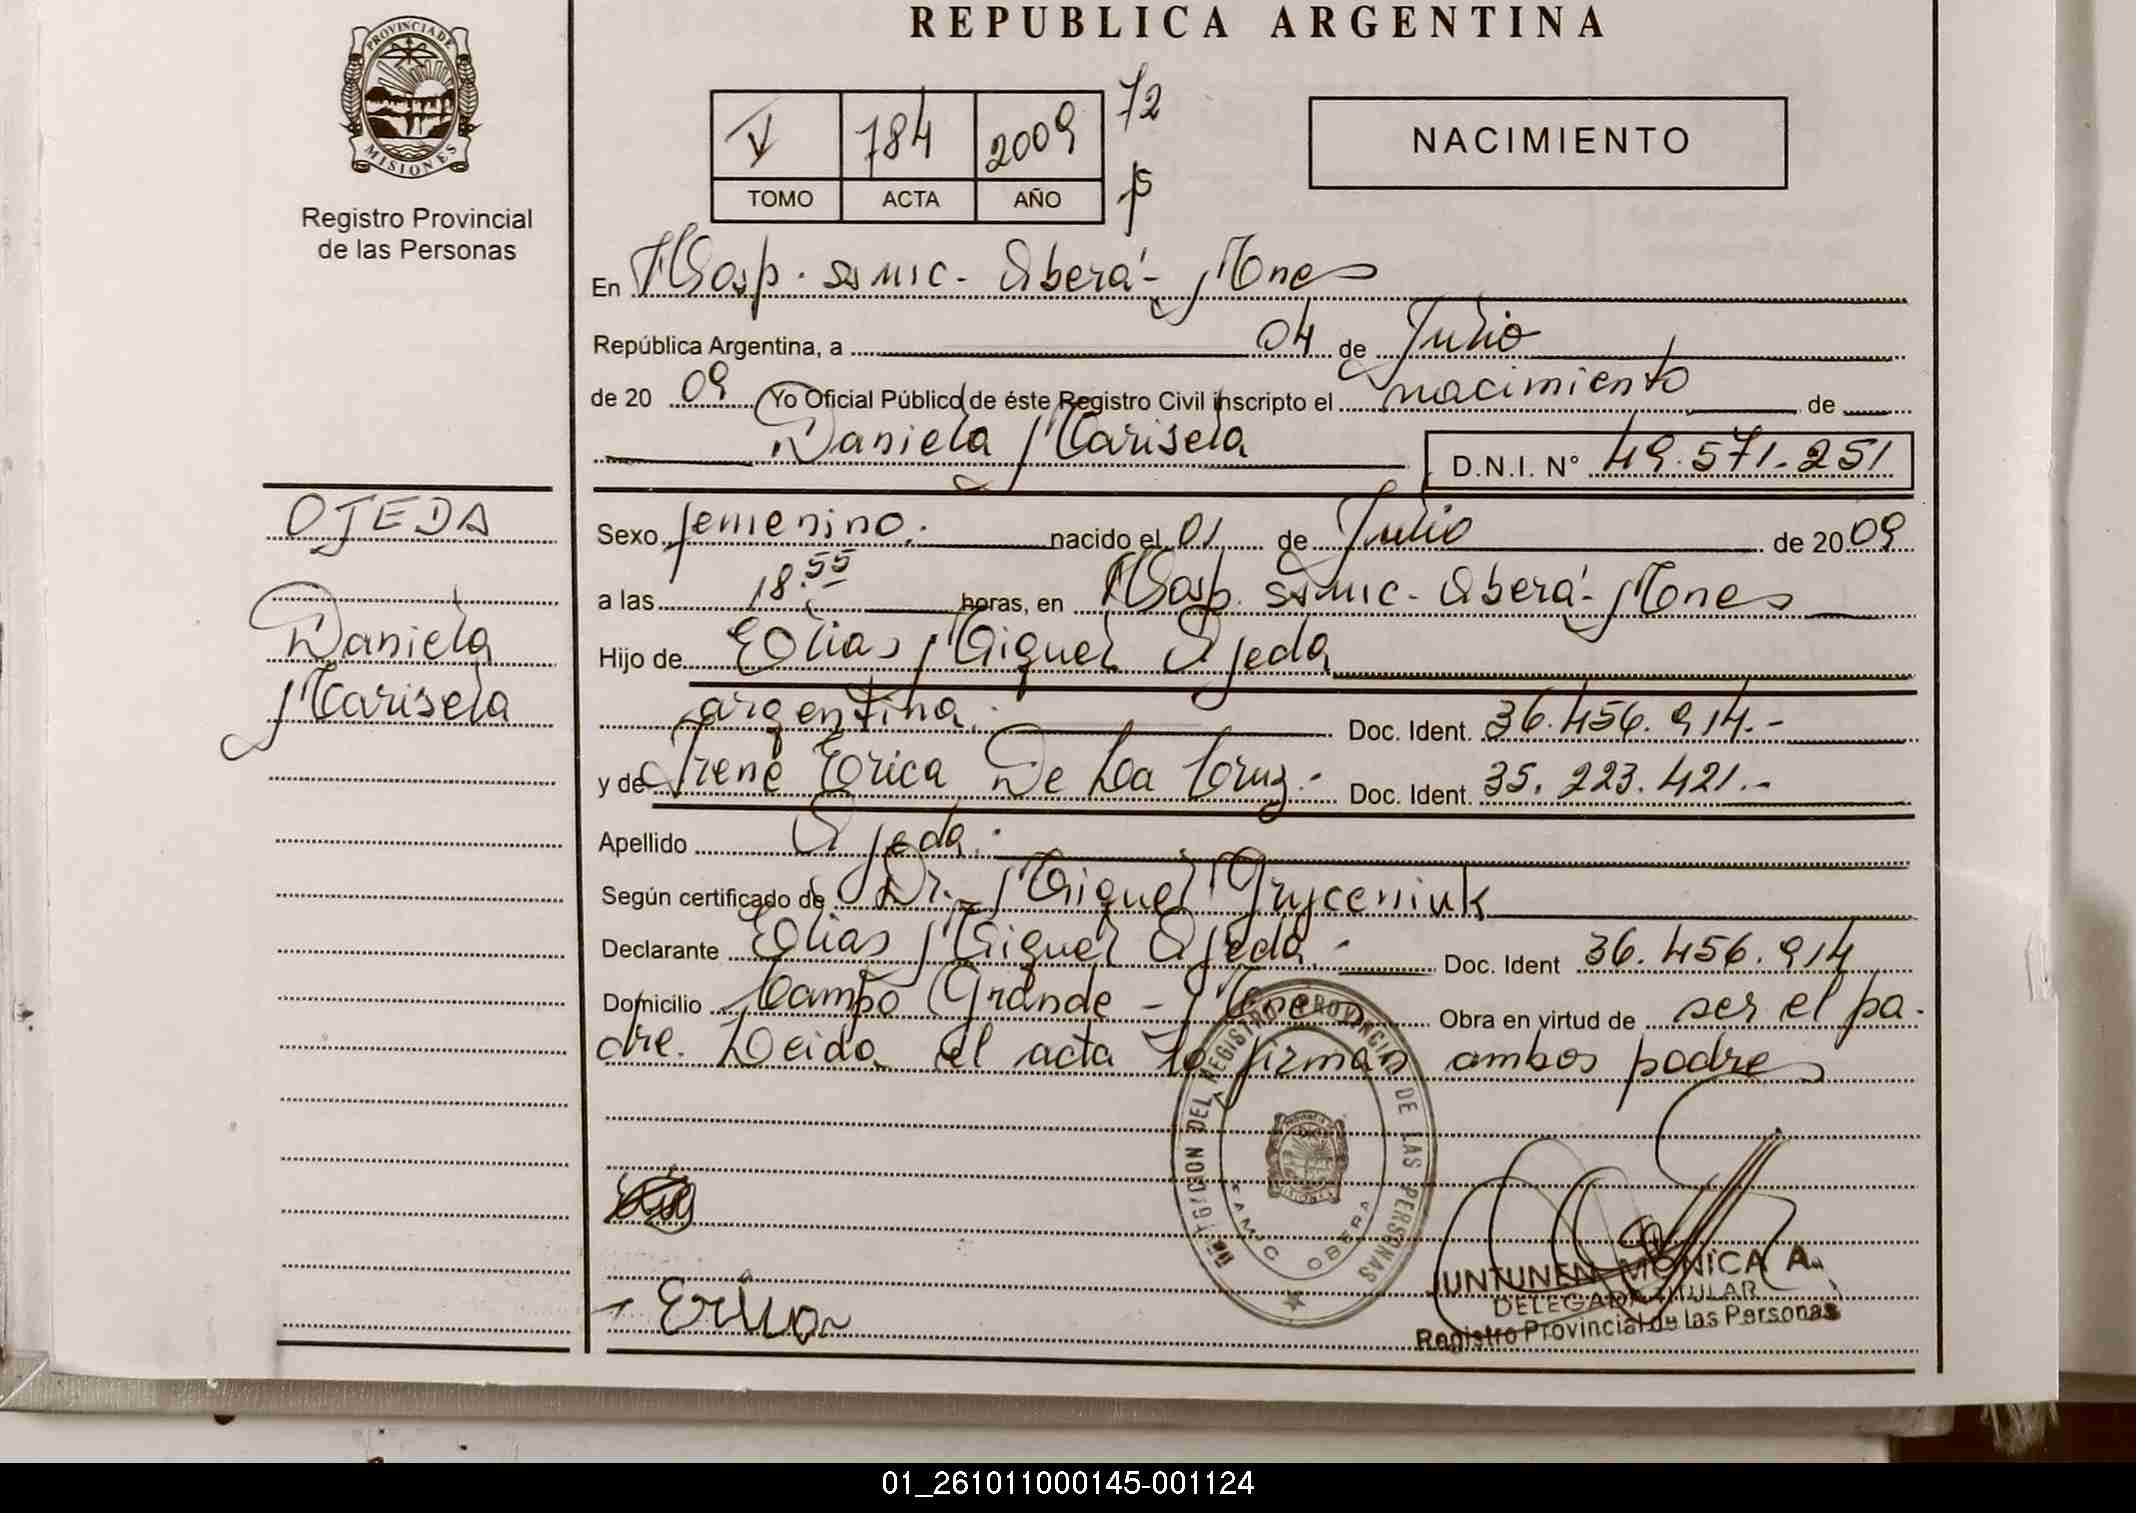 REPUBLICA ARGENTINA
PROVINCIA DE
MISIONES
Registro Provincial
de las Personas
V 784 2009 72
TOMO ACTA AÑO
NACIMIENTO
En Hosp. SAMIC - Oberá - Mnes
República Argentina, a 04 de Julio
de 20 09 Yo Oficial Público de éste Registro Civil inscripto el nacimiento de
Daniela Marisela D.N.I. N° 49.571.251
OJEDA
Daniela
Marisela
Sexo femenino. nacido el 01 de Julio de 20 09
a las 18.55 horas, en Hosp. SAMIC - Oberá - Mnes
Hijo de Elias Miguel Ojeda
argentina. Doc. Ident. 36.456.914.-
y de Irene Erica De La Cruz.- Doc. Ident. 35.223.421.-
Apellido Ojeda.
Según certificado de Dr. Miguel Gryceniuk
Declarante Elias Miguel Ojeda.- Doc. Ident 36.456.914
Domicilio Campo Grande - Mnes Obra en virtud de ser el pa-
dre. Leida el acta la firman ambos padres
DELEGACION DEL REGISTRO PROVINCIAL DE LAS PERSONAS
SAMIC OBERA
Erica
JUNTUNEN MONICA A.
DELEGADA TITULAR
Registro Provincial de las Personas
01_261011000145-001124